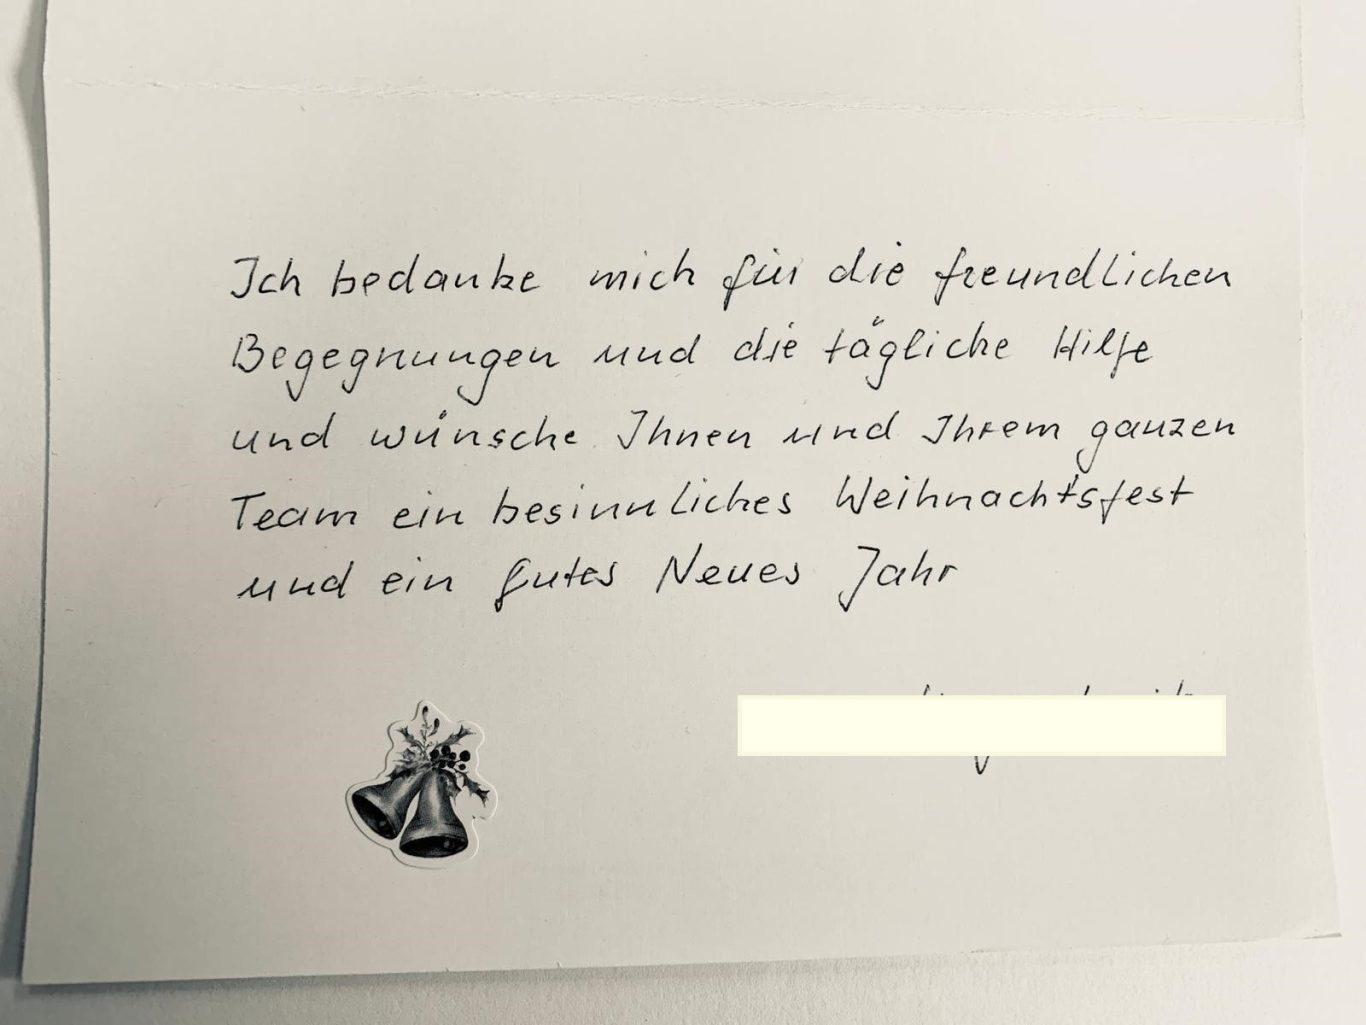 Ich bedanke mich für die freundlichen
Begegnungen und die tägliche Hilfe
und wünsche Ihnen und Ihrem ganzen
Team ein besinnliches Weihnachtsfest
und ein gutes Neues Jahr